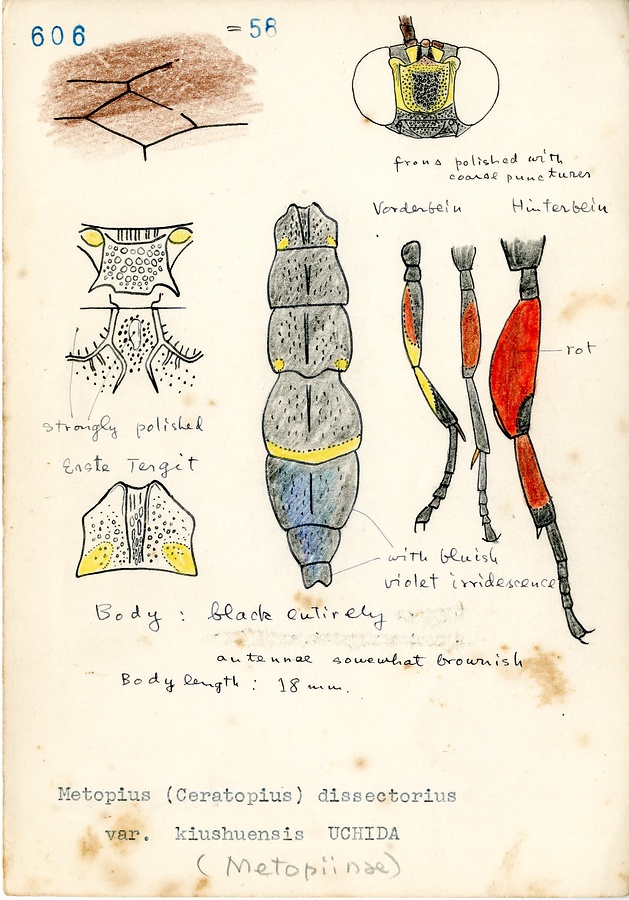 606
= 58
frons polished with
coarse punctures
Vorderbein
Hinterbein
rot
strongly polished
Erste Tergit
with bluish
violet irridescence
Body : black entirely
antennae somewhat brownish
Body length : 18 mm.
Metopius (Ceratopius) dissectorius
var. kiushuensis UCHIDA
(Metopiinae)